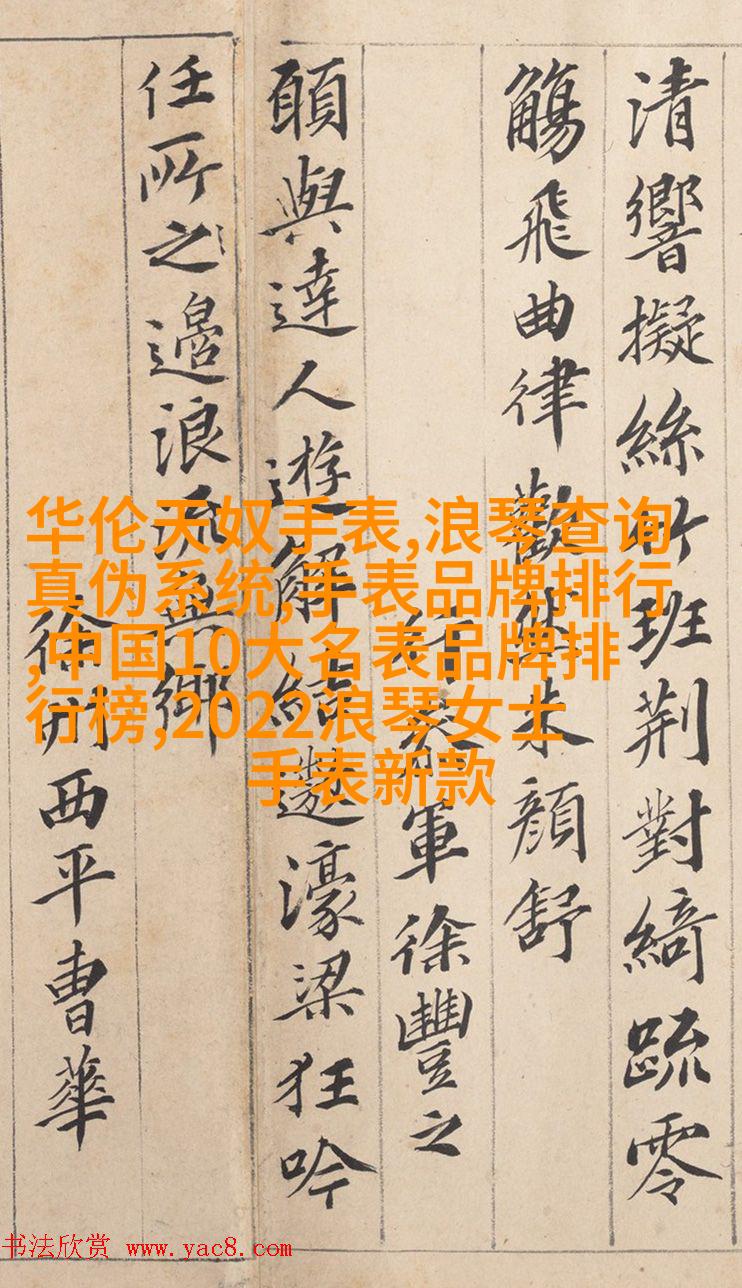 清響擬絲竹班荆對綺疏零
觴飛曲律歡然朱顔舒
行叅軍徐豐之
願與達人遊解結遨濠梁狂吟
任所之邈浪流無鄉
徐州西平曹華
华伦天奴手表,浪琴查询
真伪系统,手表品牌排行
,中国10大名表品牌排
行榜,2022浪琴女士
手表新款
书法欣赏 www.yac8.com